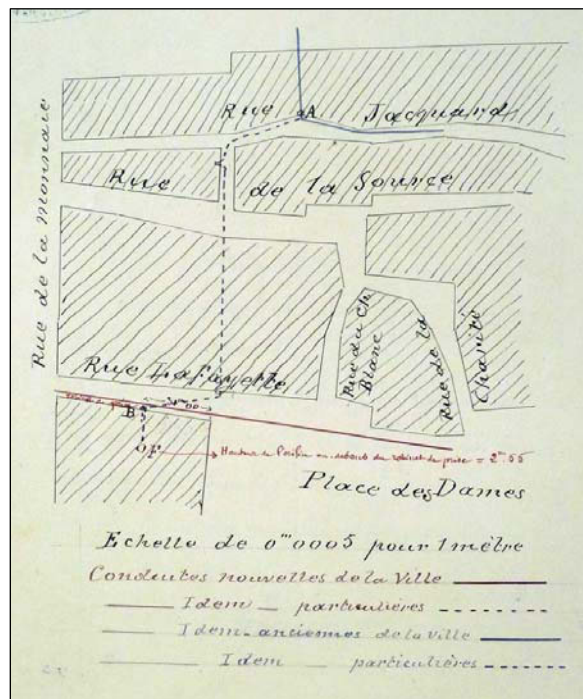 Rue A Jacquard
Rue de la Source
Rue de la Monnaie
Rue Lafayette
Rue du Ch.
Blanc
Rue de la
Charité
B
F Hauteur de l'orifice au-dessous du robinet de prise = 2m.55
Place des Dames
Echelle de 0m0005 pour 1 mètre
Conduites nouvelles de la Ville
Idem particulières
Idem anciennes de la Ville
Idem particulières